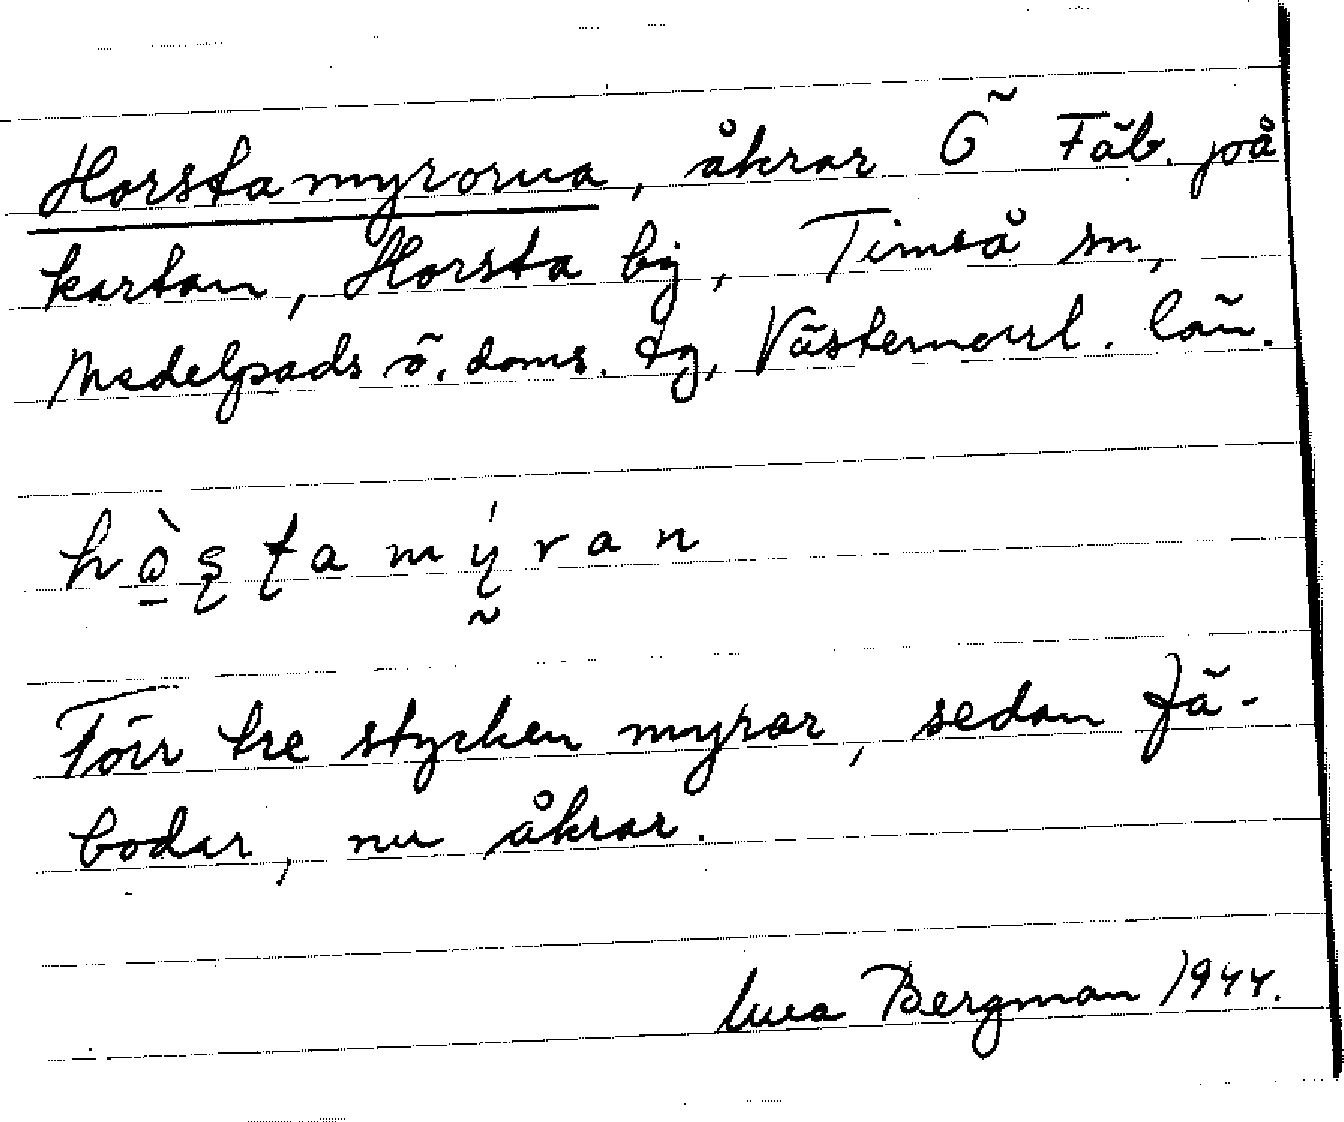 Horstamyrorna, åkrar Ö Fäb. på
kartan, Horsta by, Timrå sn,
Medelpads ö. doms. tg, Västernorrl. län.
hò̱ʂʈamýran
Förr tre stycken myrar, sedan fä-
bodar, nu åkrar.
Bergman 1944.